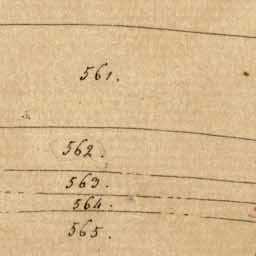 561.
562.
563.
564.
565.